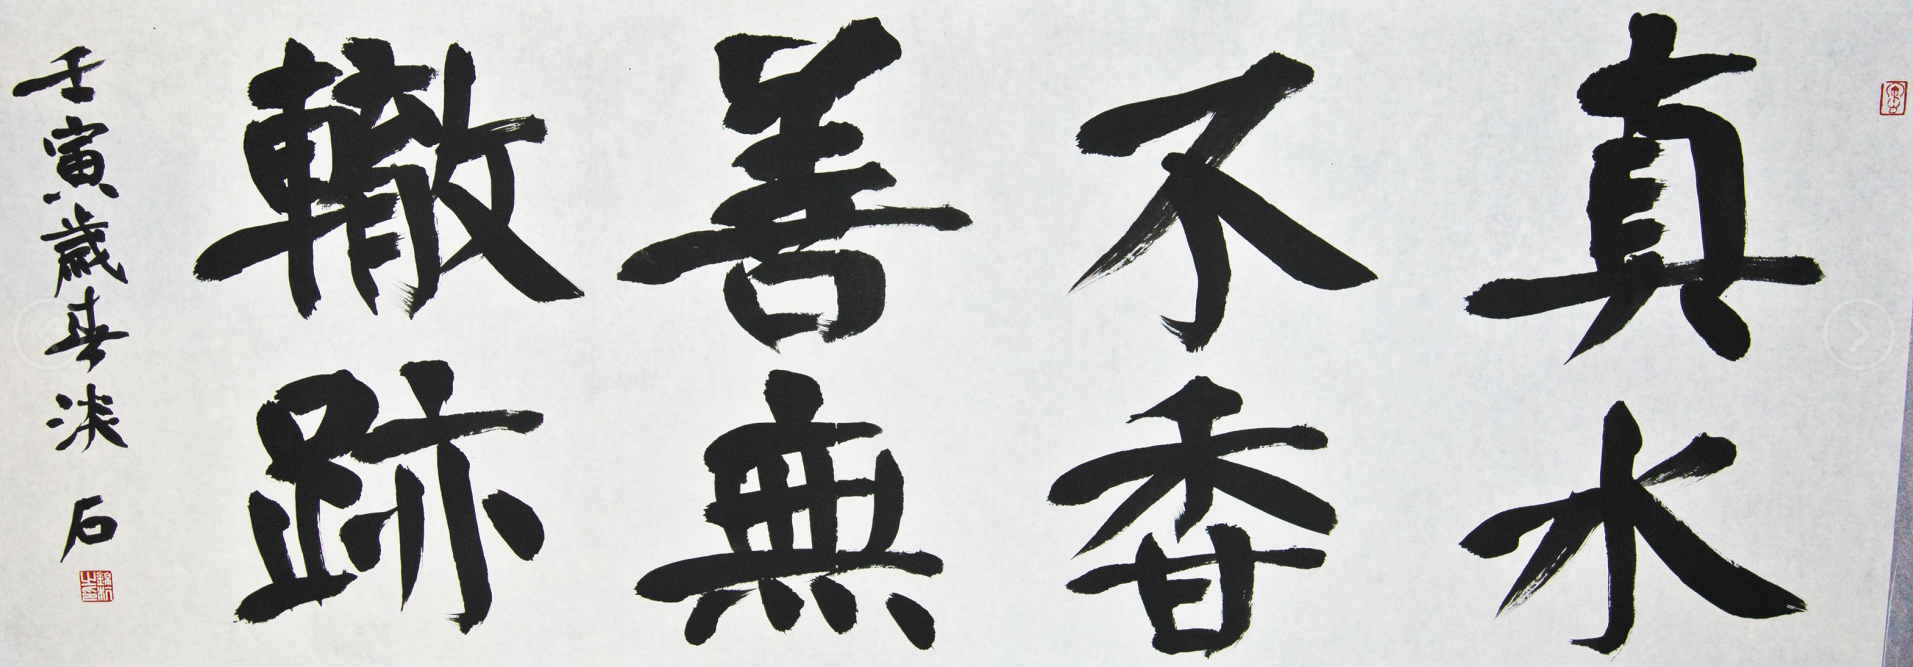 真水
不香
善無
轍跡
壬寅歲春淡石